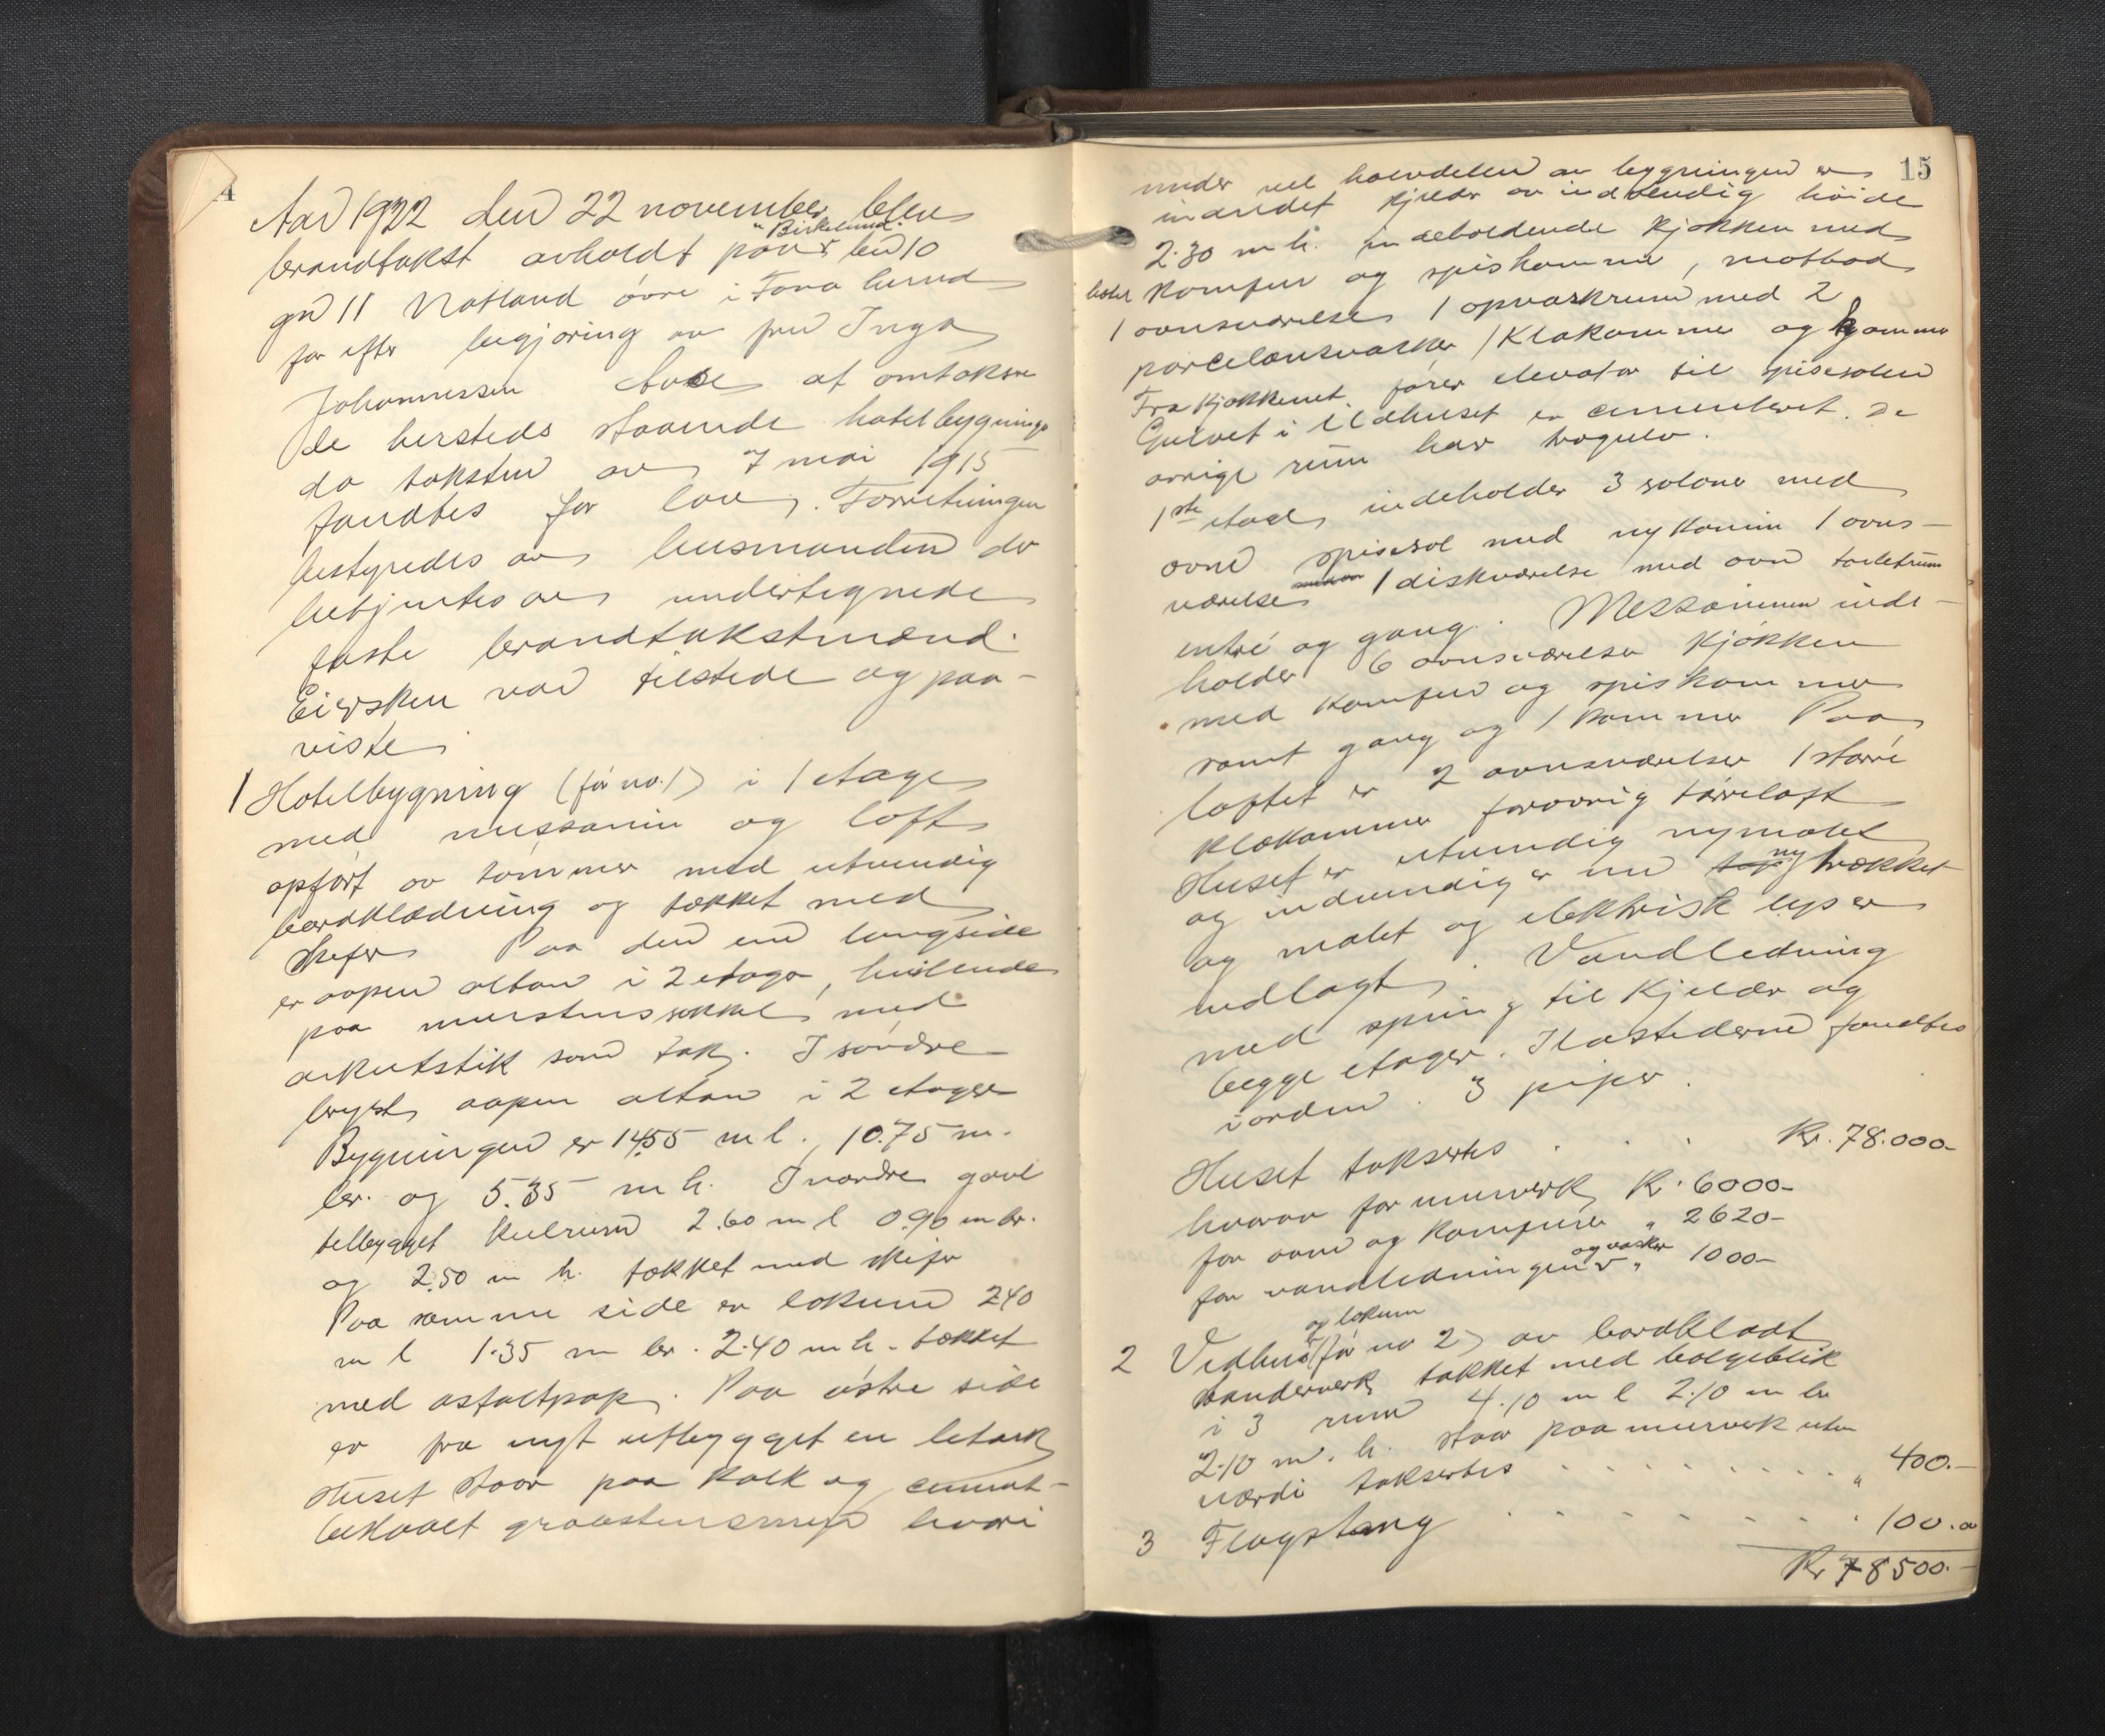 4
Aar 1922 den 22 november blev
brandtakst avholdt paa "Birkelund" bn 10
gn 11 Natland øvre i Fana herred
for efter begjæring av fru Inga
Johannessen at omtaksere
de hersteds staaende hotelbygninger
da taksten av 7 mai 1915
fandtes for lav. Forretningen
bestyredes av lensmanden der
betjentes av undertegnede
faste brandtakstmænd.
Eiersken var tilstede og paa-
viste
1 Hotelbygning (før no. 1) i 1 etage
med messanin og loft
opført av tømmer med utvendig
bordklædning og tækket med
skifer Paa den ene langside
er aapen altan i 2 etager, hvilende
paa murstenssokkel med
arkutstik som tak. I søndre
bryst aapen altan i 2 etager
Bygningen er 14.55 m l., 10.75 m.
br. og 5.35 m h. I nordre gavl
tilbygget kulrum 2.60 m l 0.90 m br.
og 2.50 m h. tækket med skifer
Paa samme side er lokum 2.40
m l 1.35 m br. 2.40 m h. tækket
med asfaltpap. Paa østre side
er fra nyt utbygget en letark
Huset staar paa kalk og cement-
beslaaet graastensmur hvori
15
under hele hoveddelen av bygningen er
indredet kjelder av indvendig høide
2.30 m h. indeholdende kjøkken med
komfur og spiskammer, matbod
1 ovnsværelse 1 opvaskrum med 2
porcelænsvasker 1 Klækammer og kammer
Fra kjøkkenet fører elevator til spisesalen
Gulvet i Ildhuset er cementeret. De
øvrige rum har trægulv.
1ste etage indeholder 3 saloner med
ovne spisesal med ny kamin 1 ovns-
værelse 1 diskværelse med ovn toiletrum
entré og gang. Messaninen inde-
holder 6 ovnsværelser kjøkken
med komfur og spiskammer
samt gang og 1 kammer Paa
loftet er 2 ovnsværelser 1 større
klækammer forøvrig tørreloft
Huset er utvendig nymalet
og indvendig er nu ny trækket
og malet og elektrisk lys er
indlagt. Vandledning
med spring til kjelder og
begge etager. Ildstederne fandtes
i orden. 3 piper.
Huset taksertes . . . Kr. 78.000-
hvorav for murverk Kr. 6000-
for ovne og komfurer " 2620-
for vandledningen og vasker " 1000-
2 Vedhus og lokum (før no 2) av bordklædt
bindverk tækket med bølgeblik
i 3 rum 4.10 m l 2.10 m br
2.10 m. h. staar paa murverk uten
værdi taksertes . . . . . . . . . " 400.-
3 Flagstang . . . . . . . . 100.00
Kr 78500.-